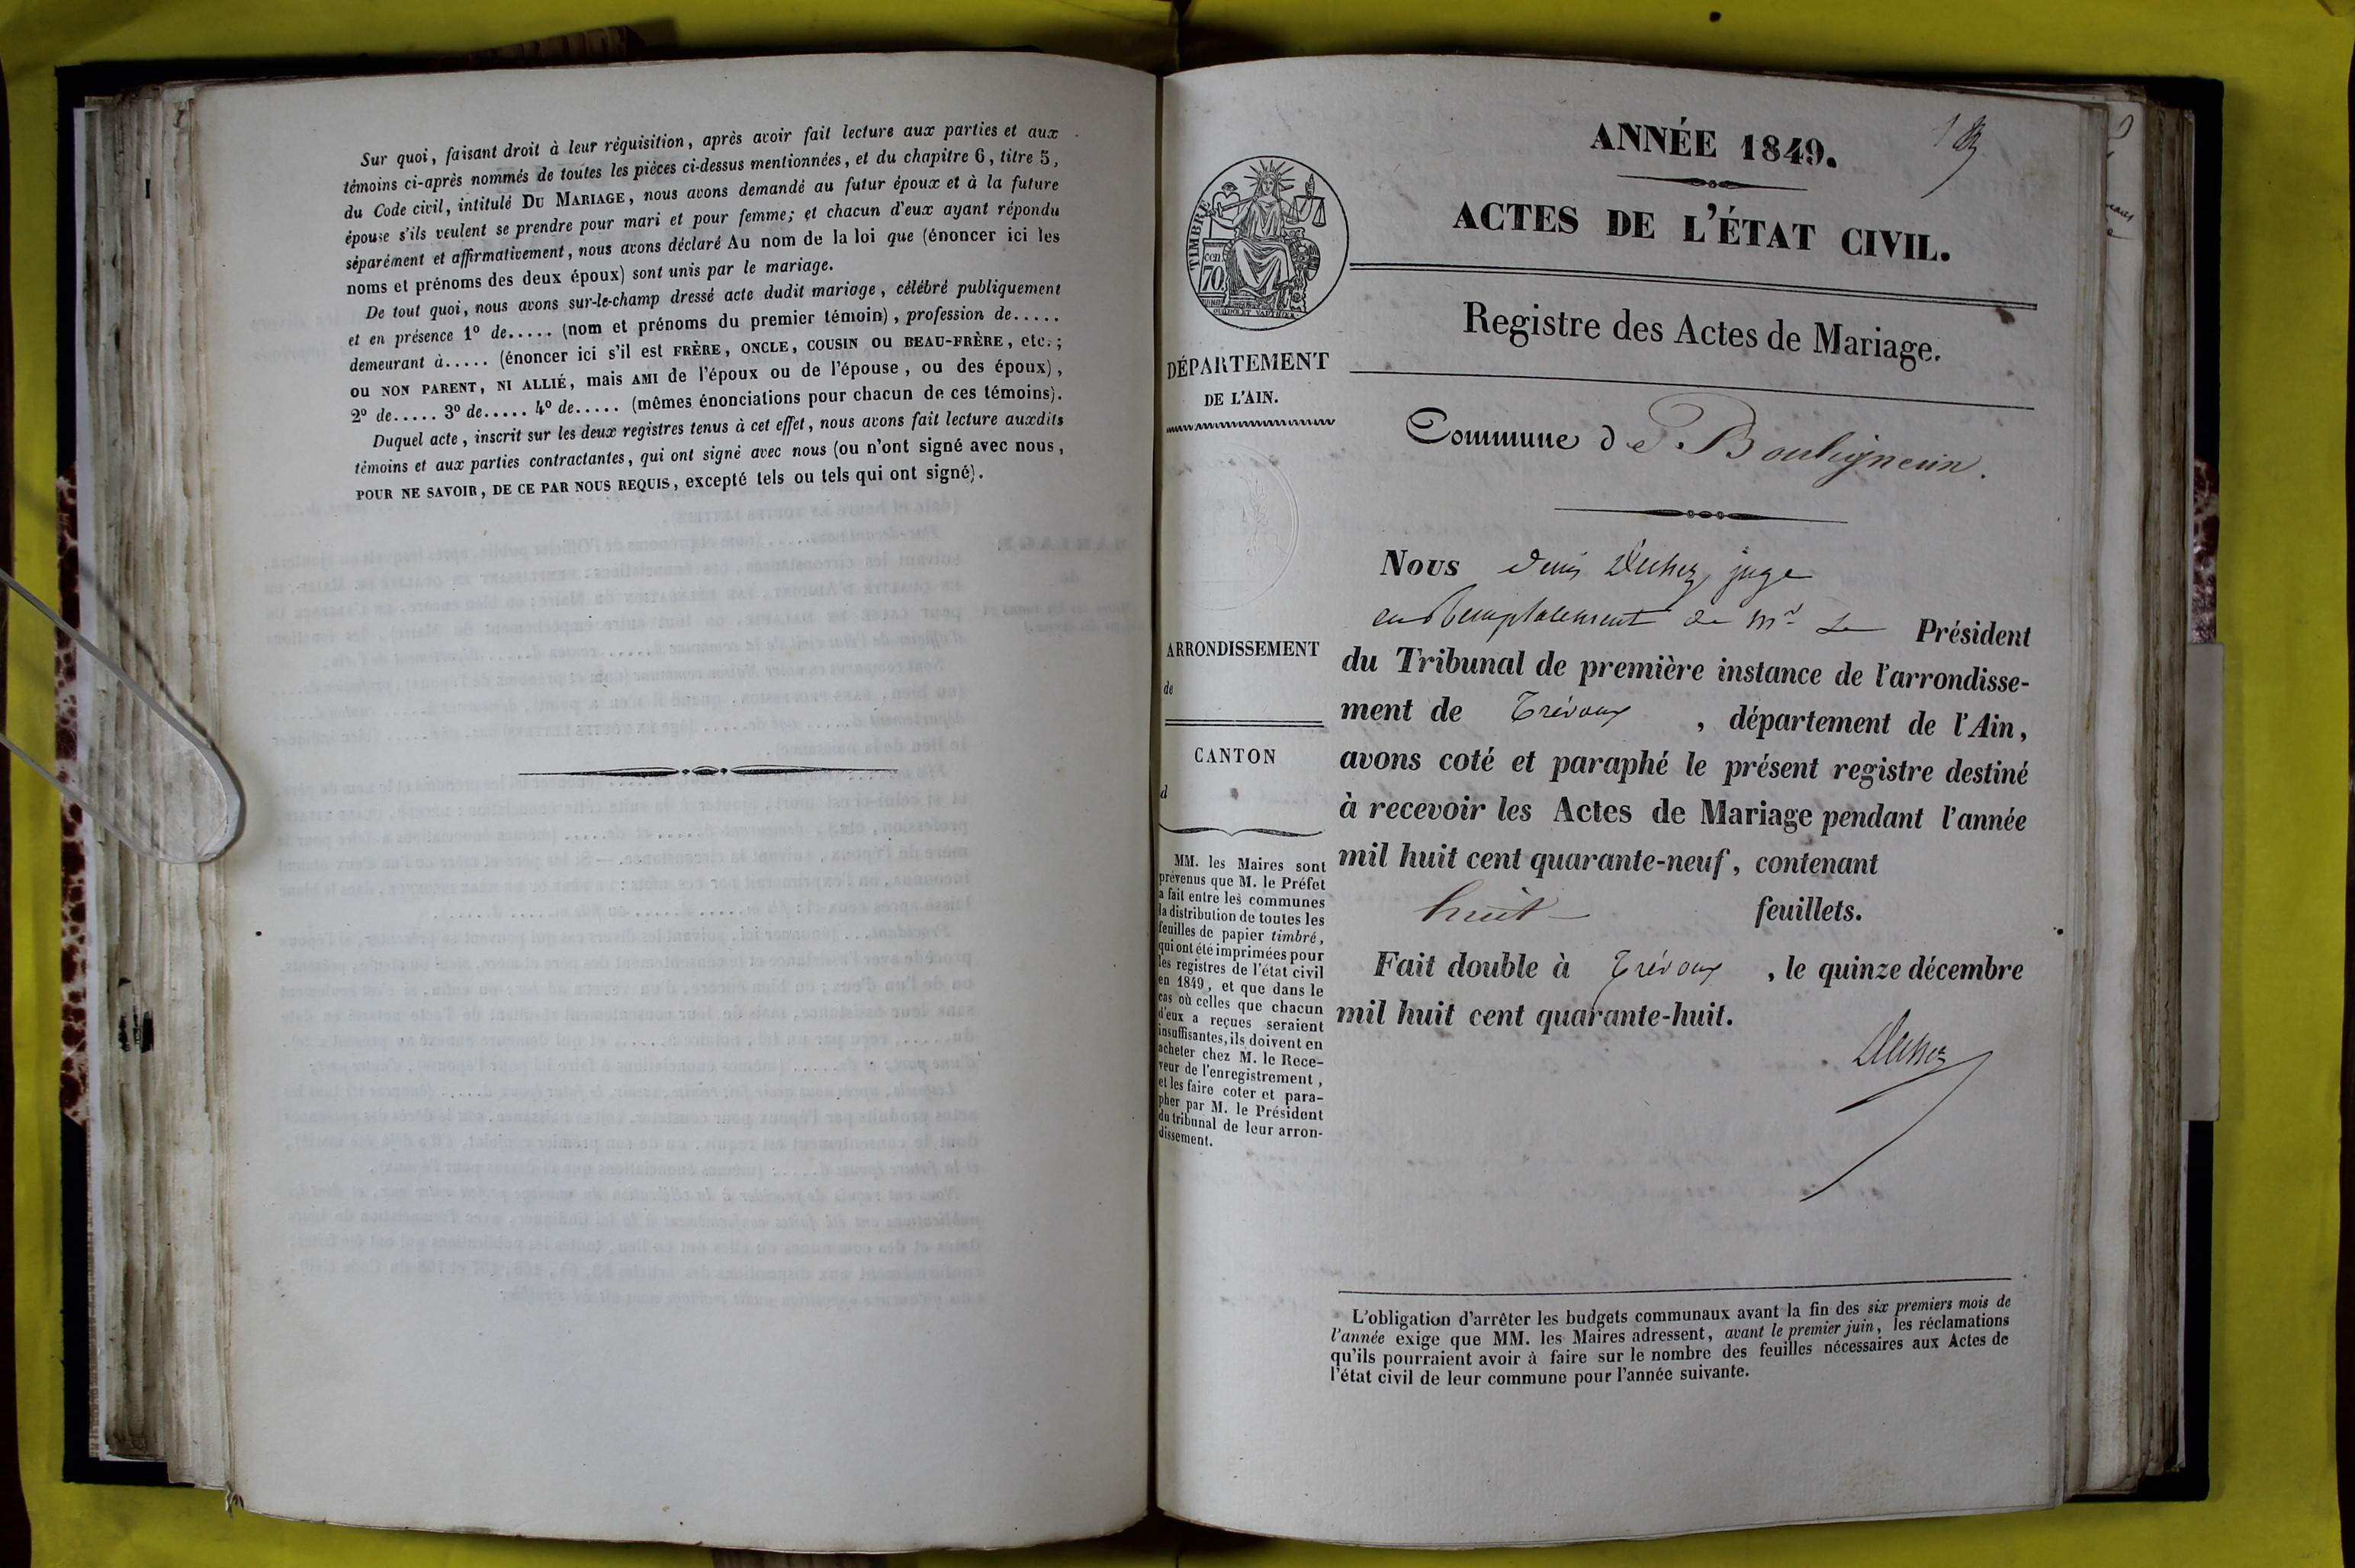 Sur quoi, faisant droit à leur réquisition, après avoir fait lecture aux parties et aux
témoins ci-après nommés de toutes les pièces ci-dessus mentionnées, et du chapitre 6, titre 5,
du Code civil, intitulé DU MARIAGE, nous avons demandé au futur époux et à la future
épouse s'ils veulent se prendre pour mari et pour femme; et chacun d'eux ayant répondu
séparément et affirmativement, nous avons déclaré Au nom de la loi que (énoncer ici les
noms et prénoms des deux époux) sont unis par le mariage.
De tout quoi, nous avons sur-le-champ dressé acte dudit mariage, célébré publiquement
et en présence 1º de..... (nom et prénoms du premier témoin), profession de.....
demeurant à..... (énoncer ici s'il est FRÈRE, ONCLE, COUSIN ou BEAU-FRÈRE, etc.;
ou NON PARENT, NI ALLIÉ, mais AMI de l'époux ou de l'épouse, ou des époux),
2º de..... 3º de..... 4º de..... (mêmes énonciations pour chacun de ces témoins).
Duquel acte, inscrit sur les deux registres tenus à cet effet, nous avons fait lecture auxdits
témoins et aux parties contractantes, qui ont signé avec nous (ou n'ont signé avec nous,
POUR NE SAVOIR, DE CE PAR NOUS REQUIS, excepté tels ou tels qui ont signé).
ANNÉE 1849.
ACTES DE L'ÉTAT CIVIL.
TIMBRE
cen.
70
Registre des Actes de Mariage.
DÉPARTEMENT
DE L'AIN.
Commune de Bouligneux.
Nous Denis juge
en Remplacement de Mr Le Président
du Tribunal de première instance de l'arrondisse-
ment de Trévoux, département de l'Ain,
avons coté et paraphé le présent registre destiné
à recevoir les Actes de Mariage pendant l'année
mil huit cent quarante-neuf, contenant
huit feuillets.
Fait double à Trévoux, le quinze décembre
mil huit cent quarante-huit.
ARRONDISSEMENT
de
CANTON
d
MM. les Maires sont
prévenus que M. le Préfet
a fait entre les communes
la distribution de toutes les
feuilles de papier timbré,
qui ont été imprimées pour
les registres de l'état civil
en 1849, et que dans le
cas où celles que chacun
d'eux a reçues seraient
insuffisantes, ils doivent en
acheter chez M. le Rece-
veur de l'enregistrement,
et les faire coter et para-
pher par M. le Président
du tribunal de leur arron-
dissement.
L'obligation d'arrêter les budgets communaux avant la fin des six premiers mois de
l'année exige que MM. les Maires adressent, avant le premier juin, les réclamations
qu'ils pourraient avoir à faire sur le nombre des feuilles nécessaires aux Actes de
l'état civil de leur commune pour l'année suivante.